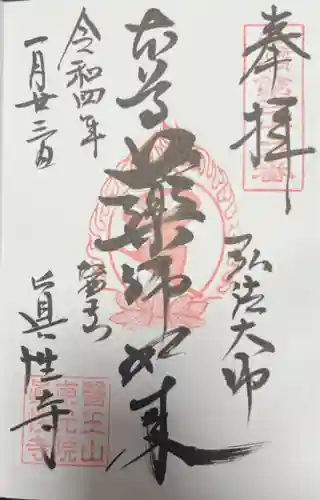 奉拝
弘法大師
本尊
薬師如来
令和四年
一月廿三日
眞性寺
醫王山
東光院
眞性寺